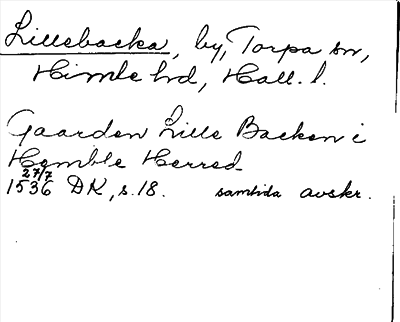 Lillebacka, by, Torpa sn,
Himle hd, Hall. l.
Gaarden Lille Backen i
Hemble Herred
27/7
1536 DK, s. 18. samtida avskr.